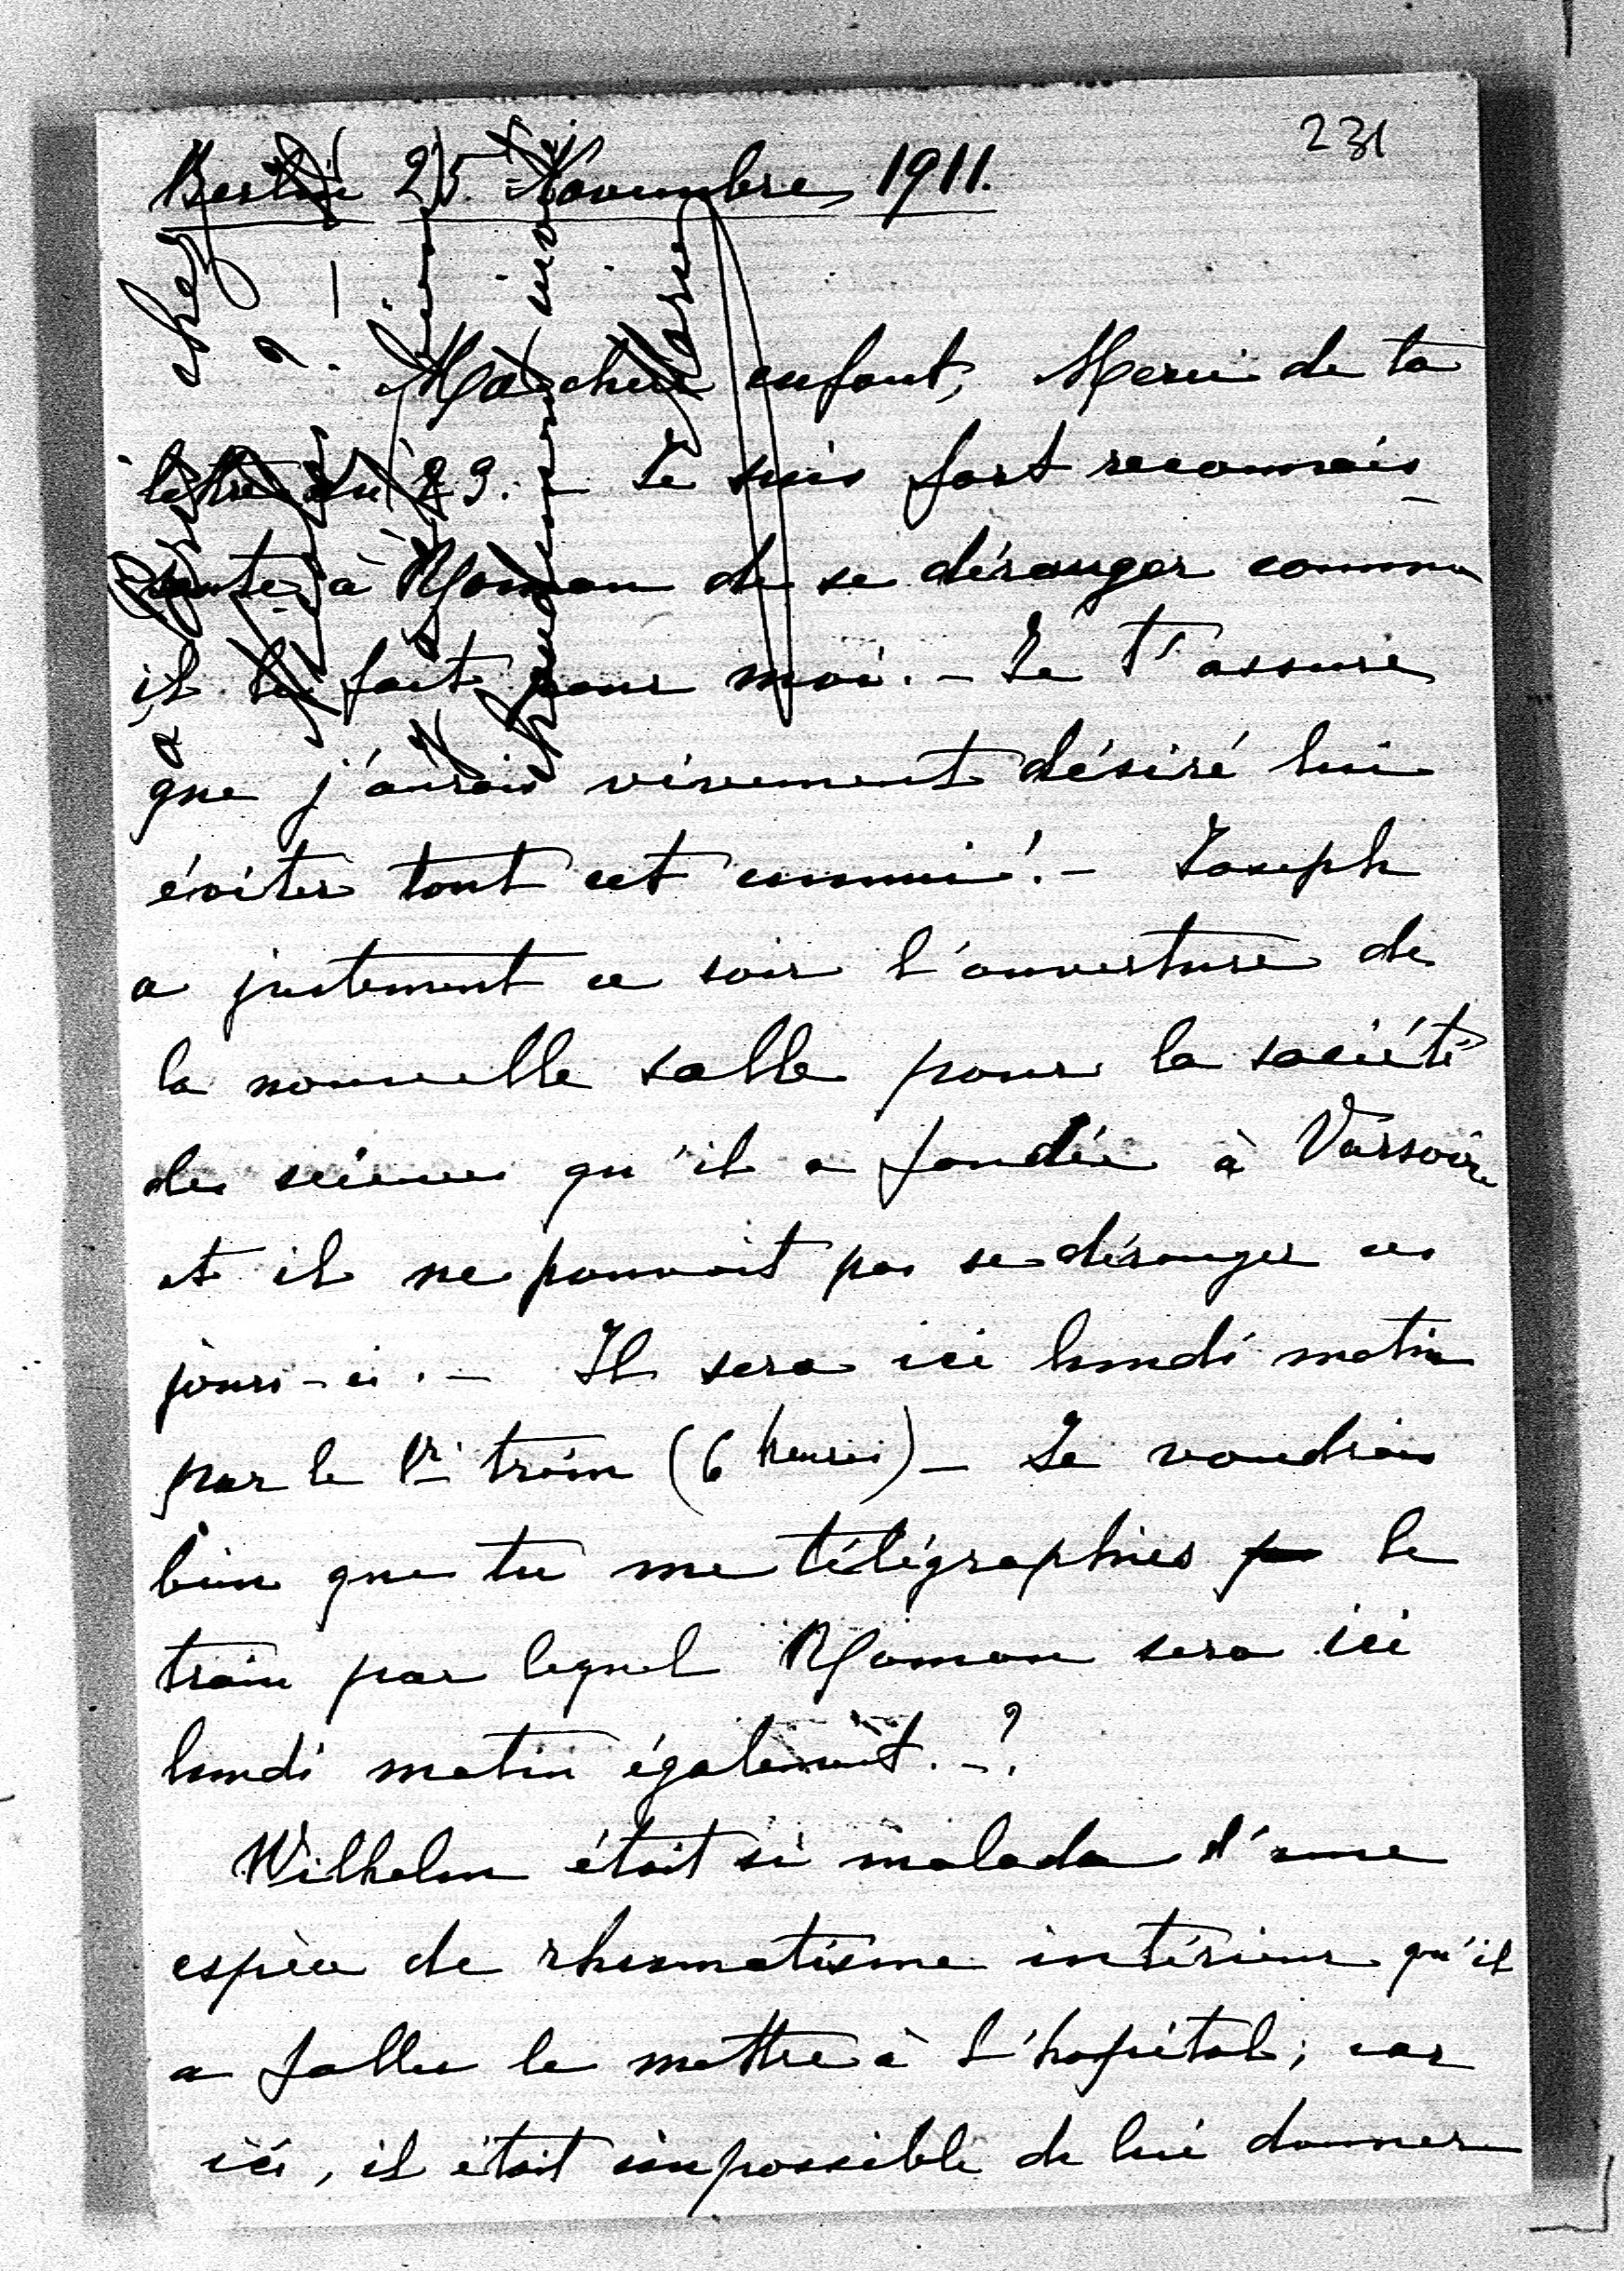 231
Berlin 25. Novembre 1911.
Ma chère enfant, Merci de ta
lettre du 23. – Je suis fort reconnais-
sante à Roman de se déranger comme
il le fait pour moi. – Je t'assure
que j'aurais vivement désiré lui
éviter tout cet ennui! – Joseph
a justement ce soir l'ouverture de
la nouvelle salle pour la société
des sciences qu'il a fondée à Varsovie
et il ne pouvait pas se déranger ces
jours-ci. – Il sera ici lundi matin
par le 1r train (6 heures) – Je voudrais
bien que tu me télégraphies le
train par lequel Roman sera ici
lundi matin également. – ?
Wilhelm était si malade d'une
espèce de rhumatisme intérieur qu'il
a fallu le mettre à l'hopital; car
ici, il était impossible de lui donner